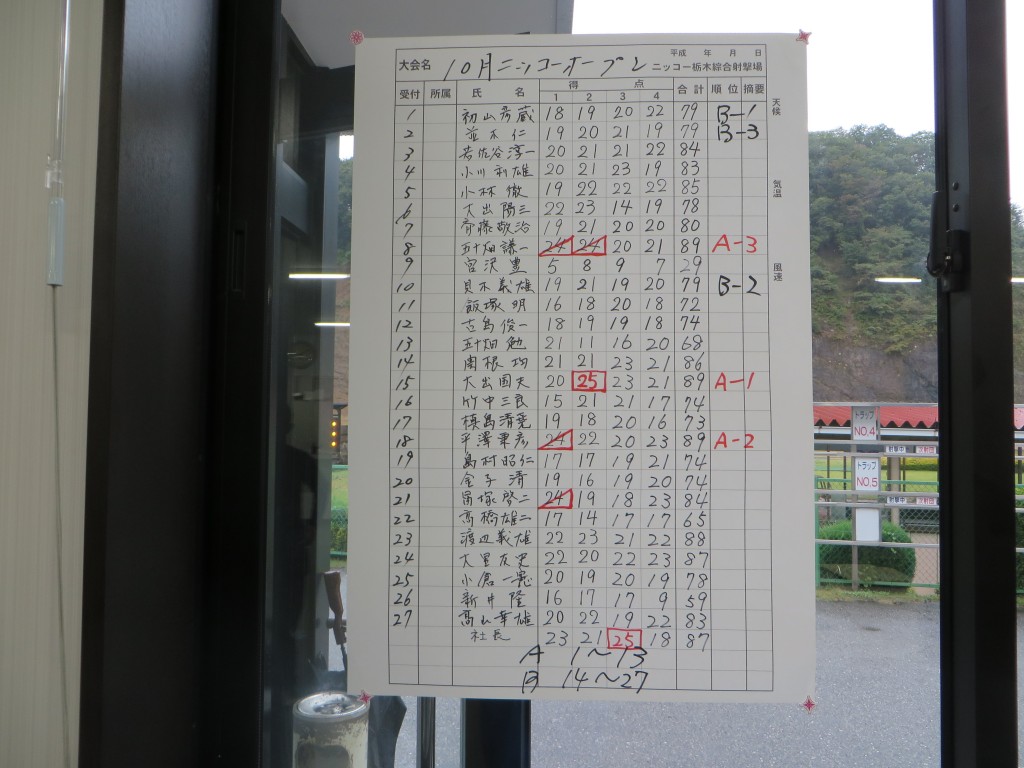 平成 年 月 日
大会名 10月ニッコーオープン ニッコー栃木綜合射撃場
受付 所属 氏名 得点 1 2 3 4 合計 順位 摘要
天候
気温
風速
1 初山彦蔵 18 19 20 22 79 B-1
2 並木仁 19 20 21 19 79 B-3
3 若佐谷淳一 20 21 21 22 84
4 小川利雄 20 21 23 19 83
5 小林徹 19 22 22 22 85
6 大出陽三 22 23 14 19 78
7 斉藤敬治 19 21 20 20 80
8 五十畑謙一 24 24 20 21 89 A-3
9 宮沢豊 5 8 9 7 29
10 貝木義雄 19 21 19 20 79 B-2
11 飯塚明 16 18 20 18 72
12 古島俊一 18 19 19 18 74
13 五十畑勉 21 11 16 20 68
14 関根均 21 21 23 21 86
15 大出国夫 20 25 23 21 89 A-1
16 竹中三良 15 21 21 17 74
17 槙島清 19 18 20 16 73
18 平澤 24 22 20 23 89 A-2
19 島村昭仁 17 17 19 21 74
20 金子清 19 16 19 20 74
21 塚啓二 24 19 18 23 84
22 高橋雄二 17 14 17 17 65
23 渡辺義雄 22 23 21 22 88
24 大里友吏 22 20 22 23 87
25 小倉一 20 19 20 19 78
26 新井隆 16 17 17 9 59
27 高山幸雄 20 22 19 22 83
社長 23 21 25 18 87
A 1〜13
B 14〜27
トラップ
NO.4
トラップ
NO.5